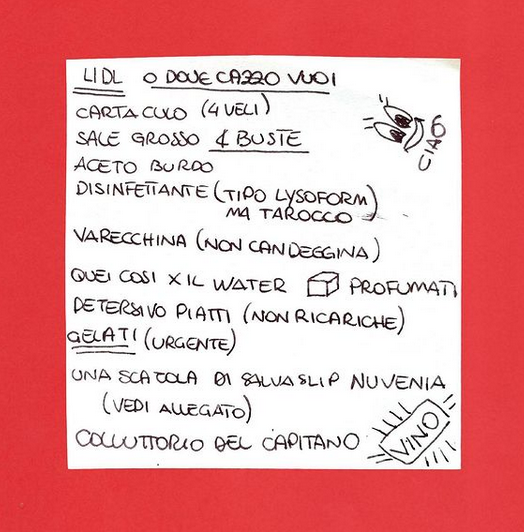 LIDL O DOVE CAZZO VUOI
CARTA CULO (4 VELI)
SALE GROSSO 4 BUSTE
CIAO
ACETO BURDO
DISINFETTANTE (TIPO LYSOFORM)
MA TAROCCO
VARECCHINA (NON CANDEGGINA)
QUEI COSI X IL WATER PROFUMATI
DETERSIVO PIATTI (NON RICARICHE)
GELATI (URGENTE)
UNA SCATOLA DI SALVASLIP NUVENIA
(VEDI ALLEGATO)
COLLUTTORIO DEL CAPITANO
VINO